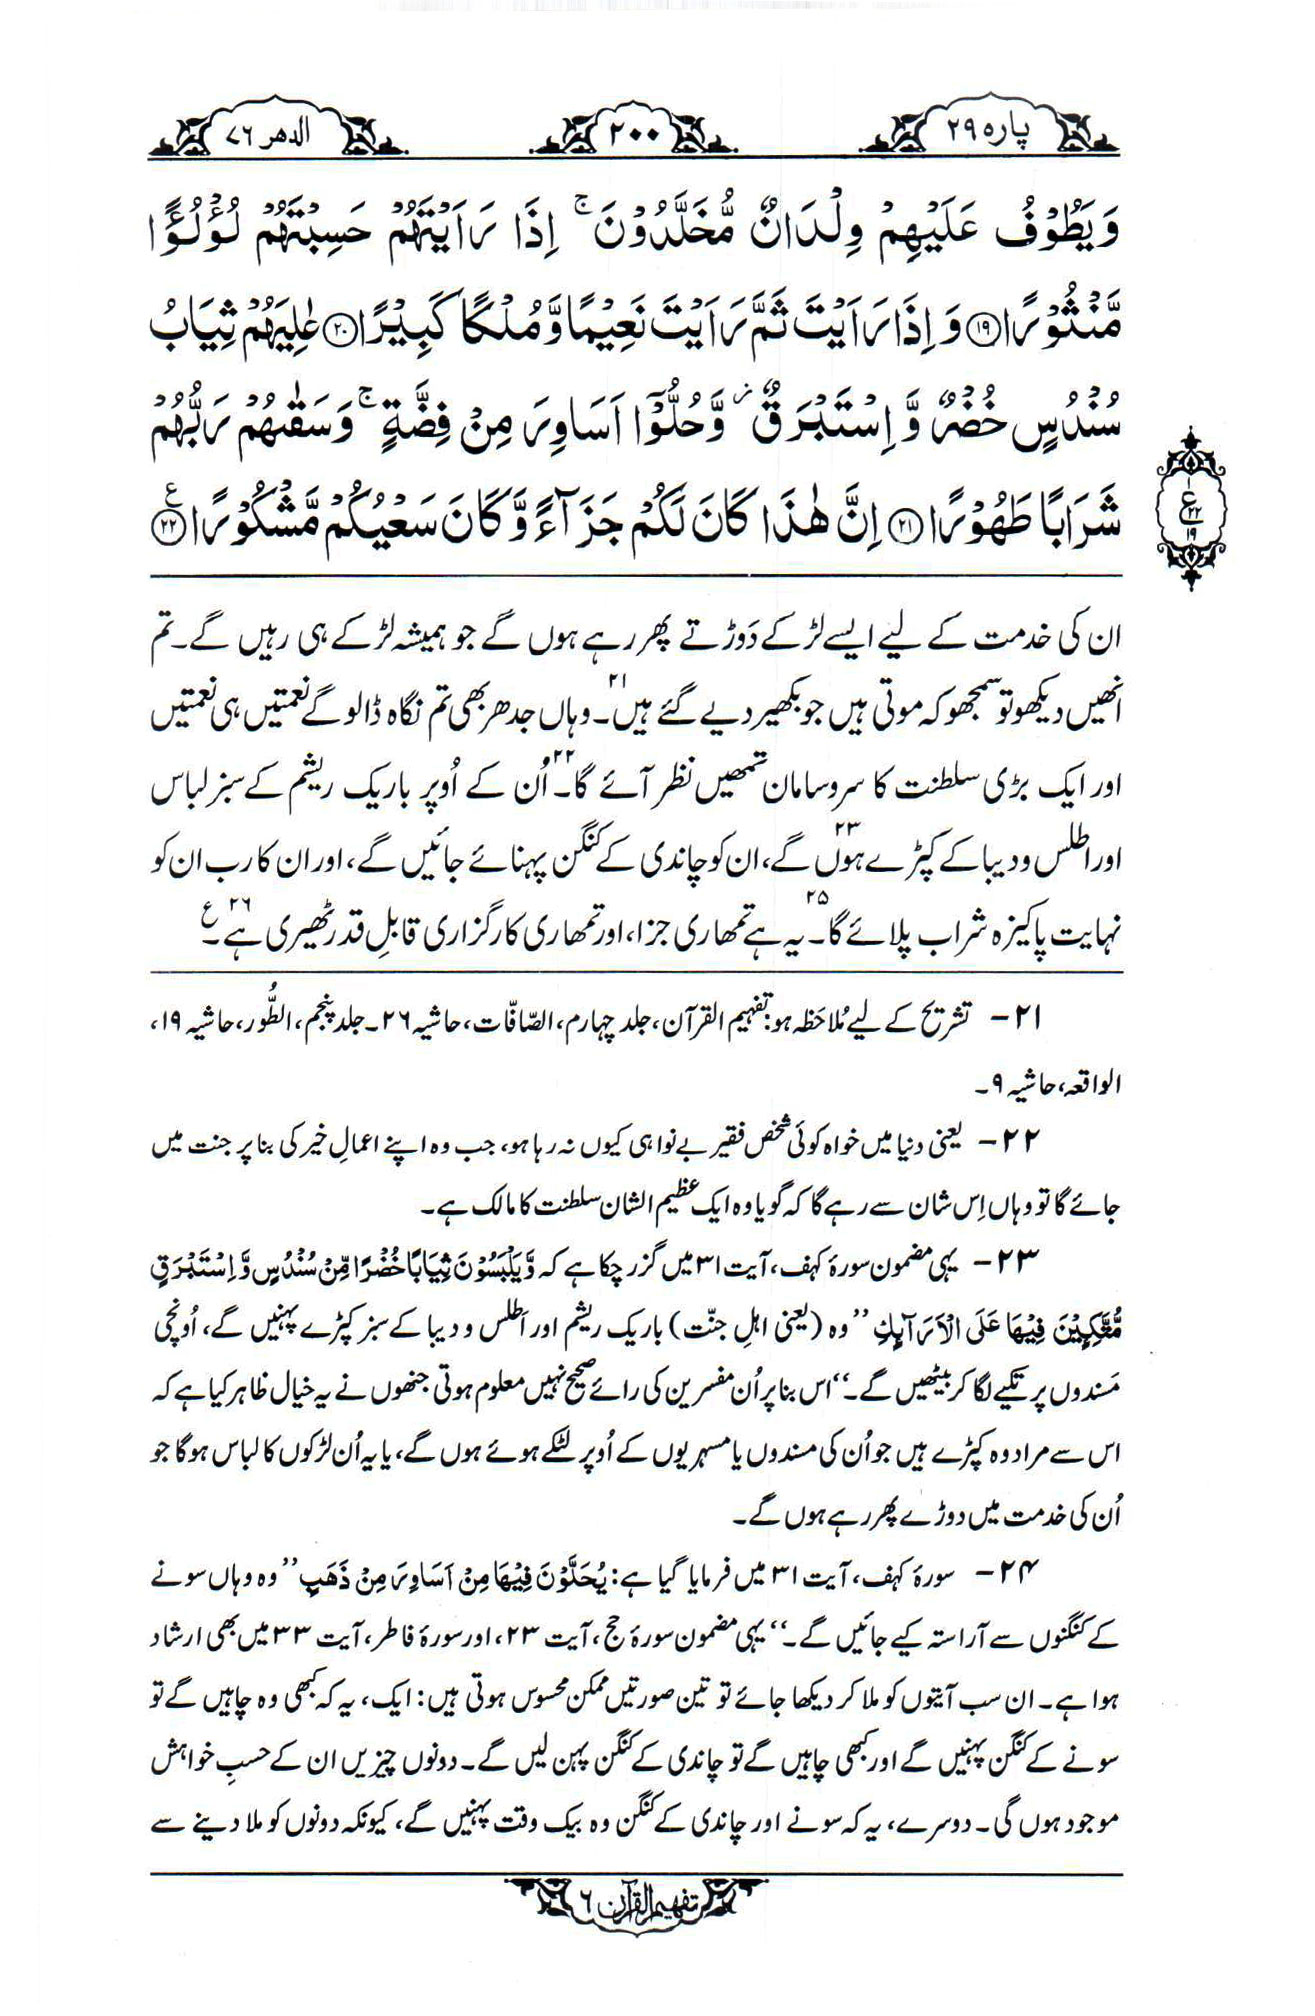 پارہ ۲۹
۲۰۰
الدھر ۷۶
وَيَطُوْفُ عَلَيْهِمْ وِلْدَانٌ مُّخَلَّدُوْنَ ۚ اِذَا رَاَيْتَهُمْ حَسِبْتَهُمْ لُؤْلُؤًا
مَّنْثُوْرًا ﴿۱۹﴾ وَ اِذَا رَاَيْتَ ثَمَّ رَاَيْتَ نَعِيْمًا وَّ مُلْكًا كَبِيْرًا ﴿۲۰﴾ عٰلِيَهُمْ ثِيَابُ
سُنْدُسٍ خُضْرٌ وَّ اِسْتَبْرَقٌ ۡ وَّ حُلُّوْٓا اَسَاوِرَ مِنْ فِضَّةٍ ۚ وَ سَقٰىهُمْ رَبُّهُمْ
شَرَابًا طَهُوْرًا ﴿۲۱﴾ اِنَّ هٰذَا كَانَ لَكُمْ جَزَآءً وَّ كَانَ سَعْيُكُمْ مَّشْكُوْرًا ﴿۲۲﴾ ع
۱
ع ۲۲
۱۹
ان کی خدمت کے لیے ایسے لڑکے دَوڑتے پھر رہے ہوں گے جو ہمیشہ لڑکے ہی رہیں گے۔ تم
انھیں دیکھو تو سمجھو کہ موتی ہیں جو بکھیر دیے گئے ہیں۔۲۱ وہاں جدھر بھی تم نگاہ ڈالو گے نعمتیں ہی نعمتیں
اور ایک بڑی سلطنت کا سروسامان تمھیں نظر آئے گا۔۲۲ اُن کے اُوپر باریک ریشم کے سبز لباس
اور اطلس و دیبا کے کپڑے ہوں۲۳ گے، ان کو چاندی کے کنگن پہنائے جائیں گے، اور ان کا رب ان کو
نہایت پاکیزہ شراب پلائے گا۔۲۵ یہ ہے تمھاری جزا، اور تمھاری کارگزاری قابلِ قدر ٹھیری ہے۔۲۶ ع
۲۱ - تشریح کے لیے مُلاحَظہ ہو: تفہیم القرآن، جلد چہارم، الصّافّات، حاشیہ ۲۶۔ جلد پنجم، الطُّور، حاشیہ ۱۹،
الواقعہ، حاشیہ ۹۔
۲۲ - یعنی دنیا میں خواہ کوئی شخص فقیر بے نوا ہی کیوں نہ رہا ہو، جب وہ اپنے اعمالِ خیر کی بنا پر جنت میں
جائے گا تو وہاں اِس شان سے رہے گا کہ گویا وہ ایک عظیم الشان سلطنت کا مالک ہے۔
۲۳ - یہی مضمون سورۂ کہف، آیت ۳۱ میں گزر چکا ہے کہ وَّ يَلْبَسُوْنَ ثِيَابًا خُضْرًا مِّنْ سُنْدُسٍ وَّ اِسْتَبْرَقٍ
مُّتَّكِـِٕيْنَ فِيْهَا عَلَى الْاَرَآىِٕكِ ”وہ (یعنی اہلِ جنّت) باریک ریشم اور اَطلس و دیبا کے سبز کپڑے پہنیں گے، اُونچی
مَسندوں پر تکیے لگا کر بیٹھیں گے۔“ اس بنا پر اُن مفسرین کی رائے صحیح نہیں معلوم ہوتی جنھوں نے یہ خیال ظاہر کیا ہے کہ
اس سے مراد وہ کپڑے ہیں جو اُن کی مسندوں یا مسہریوں کے اُوپر لٹکے ہوئے ہوں گے، یا یہ اُن لڑکوں کا لباس ہوگا جو
اُن کی خدمت میں دوڑے پھر رہے ہوں گے۔
۲۴ - سورۂ کہف، آیت ۳۱ میں فرمایا گیا ہے: يُحَلَّوْنَ فِيْهَا مِنْ اَسَاوِرَ مِنْ ذَهَبٍ ”وہ وہاں سونے
کے کنگنوں سے آراستہ کیے جائیں گے۔“ یہی مضمون سورۂ حج، آیت ۲۳، اور سورۂ فاطر، آیت ۳۳ میں بھی ارشاد
ہوا ہے۔ ان سب آیتوں کو ملا کر دیکھا جائے تو تین صورتیں ممکن محسوس ہوتی ہیں: ایک، یہ کہ کبھی وہ چاہیں گے تو
سونے کے کنگن پہنیں گے اور کبھی چاہیں گے تو چاندی کے کنگن پہن لیں گے۔ دونوں چیزیں ان کے حسبِ خواہش
موجود ہوں گی۔ دوسرے، یہ کہ سونے اور چاندی کے کنگن وہ بیک وقت پہنیں گے، کیونکہ دونوں کو ملا دینے سے
تفہیم القرآن ۶